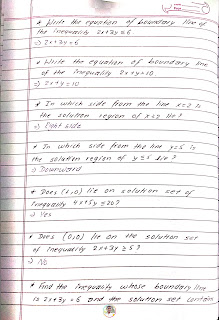 * Write the equation of boundary line of
the inequality 2x+3y≤6
⇒ 2x+3y=6
* Write the equation of boundary line
of the inequality 2x+y≥10
⇒ 2x+y=10
* In which side from the line x=2 is
the solution region of x≥2 lie?
⇒ Right side
* In which side from the line y=5 is
the solution region of y≤5 lie?
⇒ Downward
* Does (1,0) lie on solution set of
Inequality 4x+5y≤20?
⇒ Yes
* Does (0,0) lie on the solution set
of Inequality 2x+3y≥5?
⇒ No
* Find the Inequality whose boundary line
is 2x+3y=6 and the solution set contain